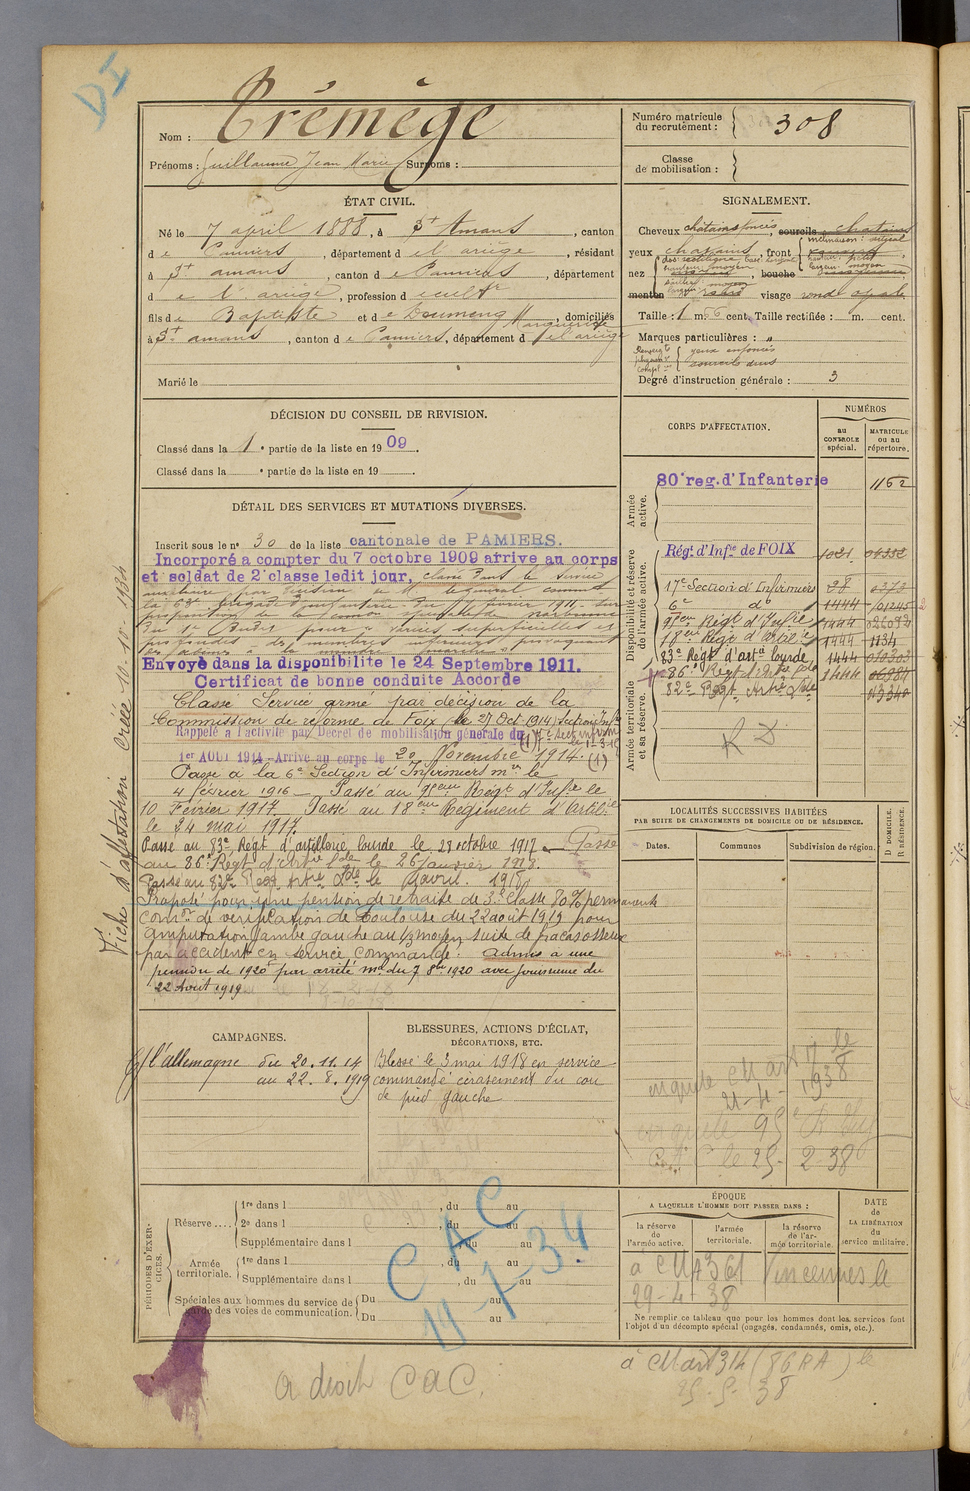 DI
Nom : Trémège
Prénoms : Guillaume Jean Marie Surnoms :
Numéro matricule du recrutement : 308
Classe de mobilisation :
ÉTAT CIVIL.
Né le 7 avril 1888, à St Amans, canton
de Pamiers, département de l'ariège, résidant
à St amans, canton de Pamiers, département
de l'ariège, profession de cultr
fils de Baptiste et de Doumeng Marguerite, domiciliés
à St amans, canton de Pamiers, département de l'ariège
Marié le
SIGNALEMENT.
Cheveux châtains foncés, sourcils chatains
yeux chatains, front inclinaison : vertical
hauteur : petit
largeur : moyen
nez dos rectiligne, base
hauteur moyen
saillie moyen
largeur
bouche
menton rond visage ronde ovale
Taille : 1 m. 56 cent. Taille rectifiée : m. cent.
Marques particulières : "
yeux enfoncés
sourcils drus
Degré d'instruction générale : 3
DÉCISION DU CONSEIL DE REVISION.
Classé dans la 1e partie de la liste en 1909.
Classé dans la e partie de la liste en 19
CORPS D'AFFECTATION.
NUMÉROS
au CONTROLE spécial.
MATRICULE ou au répertoire.
Armée active.
80e reg. d'Infanterie 1162
Disponibilité et réserve de l'armée active.
Régt d'Infie de FOIX 1021 04352
17e Section d'Infirmiers 98 0373
6e do 1444 01245
97eme Régt d'Infie 1444
18eme Régt d'Artilie 1444 1134
83e Régt d'arte lourde 1444
86e Régt d'Artie Lde 1444
82e Régt Artie Lde
Armée territoriale et sa réserve.
RD
DÉTAIL DES SERVICES ET MUTATIONS DIVERSES.
Inscrit sous le no 30 de la liste cantonale de PAMIERS.
Incorporé a compter du 7 octobre 1909 arrive au corps
et soldat de 2e classe ledit jour, classé dans le service
auxiliaire par décision de M le général commt
la 63e brigade d'infanterie du février 1911 sur
proposition de la comon spéciale de Narbonne
pour varices superficielles et
profondes des membres inférieurs provoquant
Envoyé dans la disponibilite le 24 Septembre 1911.
Certificat de bonne conduite Accorde
Classé Service armé par décision de la
Commission de réforme de Foix le 27 Oct 1914
Rappelé a l'activité par Décret de mobilisation générale du
1er AOUT 1914 - Arrive au corps le 20 Novembre 1914. (1)
Passé à la 6e Section d'Infirmiers mres le
4 février 1916 - Passé au 97eme Régt d'Infie le
10 Février 1917 Passé au 18eme Régiment d'Artilie
le 24 mai 1917.
Passé au 83e Régt d'artillerie lourde le 28 octobre 1917 - Passé
au 86e Régt d'Artie Lde le 26 Janvier 1918.
Passé au 82e Régt Artie Lde le avril 1918
Proposé pour une pension de retraite de 3e Classe 70% permanente
Comon de vérification de Toulouse du 22 août 1919 pour
amputation jambe gauche au 1/3 moyen suite de fracas osseux
par accident en service commandé. Admis à une
pension de 1920f par arrêté mel du 7 8bre 1920 avec jouissance du
22 Août 1919
Fiche d'affectation Créée 11-10-1934
LOCALITÉS SUCCESSIVES HABITÉES
PAR SUITE DE CHANGEMENTS DE DOMICILE OU DE RÉSIDENCE.
Dates.
Communes
Subdivision de région.
D DOMICILE. R RÉSIDENCE.
enquete CM art 17 le
21-4-1938
le 25-2-38
CAMPAGNES.
C/ l'allemagne du 20.11.14
au 22.8.1919
BLESSURES, ACTIONS D'ÉCLAT,
DÉCORATIONS, ETC.
Blessé le 3 mai 1918 en service
commandé écrasement du cou
de pied gauche
PÉRIODES D'EXERCICES.
Réserve.... 1re dans l , du au
2e dans l , du au
Supplémentaire dans l , du au
Armée territoriale. 1re dans l , du au
Supplémentaire dans l , du au
Spéciales aux hommes du service de garde des voies de communication. Du au
Du au
CAC
19-1-34
ÉPOQUE
A LAQUELLE L'HOMME DOIT PASSER DANS :
la réserve de l'armée active.
l'armée territoriale.
la réserve de l'armée territoriale.
DATE de LA LIBÉRATION du service militaire.
a CMA 361 Vincennes le
29-4-38
Ne remplir ce tableau que pour les hommes dont les services font
l'objet d'un décompte spécial (engagés, condamnés, omis, etc.).
a droit CAC.
à CMart 314 (86RA) le
25-5-38